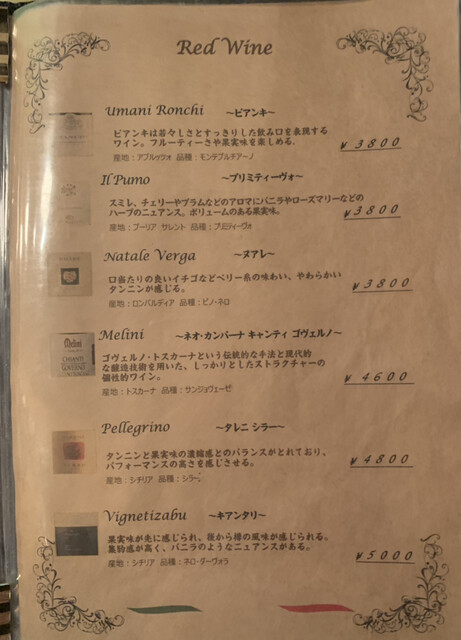 Red Wine
Umani Ronchi ～ビアンキ～
ビアンキは若々しさとすっきりした飲み口を表現する
ワイン。フルーティーさや果実味を楽しめる。
¥3800
産地：アブルッツォ 品種：モンテプルチアーノ
Il Pumo ～プリミティーヴォ～
スミレ、チェリーやプラムなどのアロマにバニラやローズマリーなどの
ハーブのニュアンス。ボリュームのある果実味。
¥3800
産地：プーリア サレント 品種：プリミティーヴォ
Natale Verga ～ヌアレ～
口当たりの良いイチゴなどベリー系の味わい、やわらかい
タンニンが感じる。
¥3800
産地：ロンバルディア 品種：ピノ・ネロ
Melini ～ネオ・カンパーナ キャンティ ゴヴェルノ～
ゴヴェルノ・トスカーナという伝統的な手法と現代的
な醸造技術を用いた、しっかりとしたストラクチャーの
個性的ワイン。
¥4600
産地：トスカーナ 品種：サンジョヴェーゼ
Melini
CHIANTI
GOVERNO
Pellegrino ～タレニ シラー～
タンニンと果実味の濃縮感とのバランスがとれており、
パフォーマンスの高さを感じさせる。
¥4800
産地：シチリア 品種：シラー
Vignetizabu ～キアンタリ～
果実味が先に感じられ、後から樽の風味が感じられる。
集約感が高く、バニラのようなニュアンスがある。
¥5000
産地：シチリア 品種：ネロ・ダーヴォラ